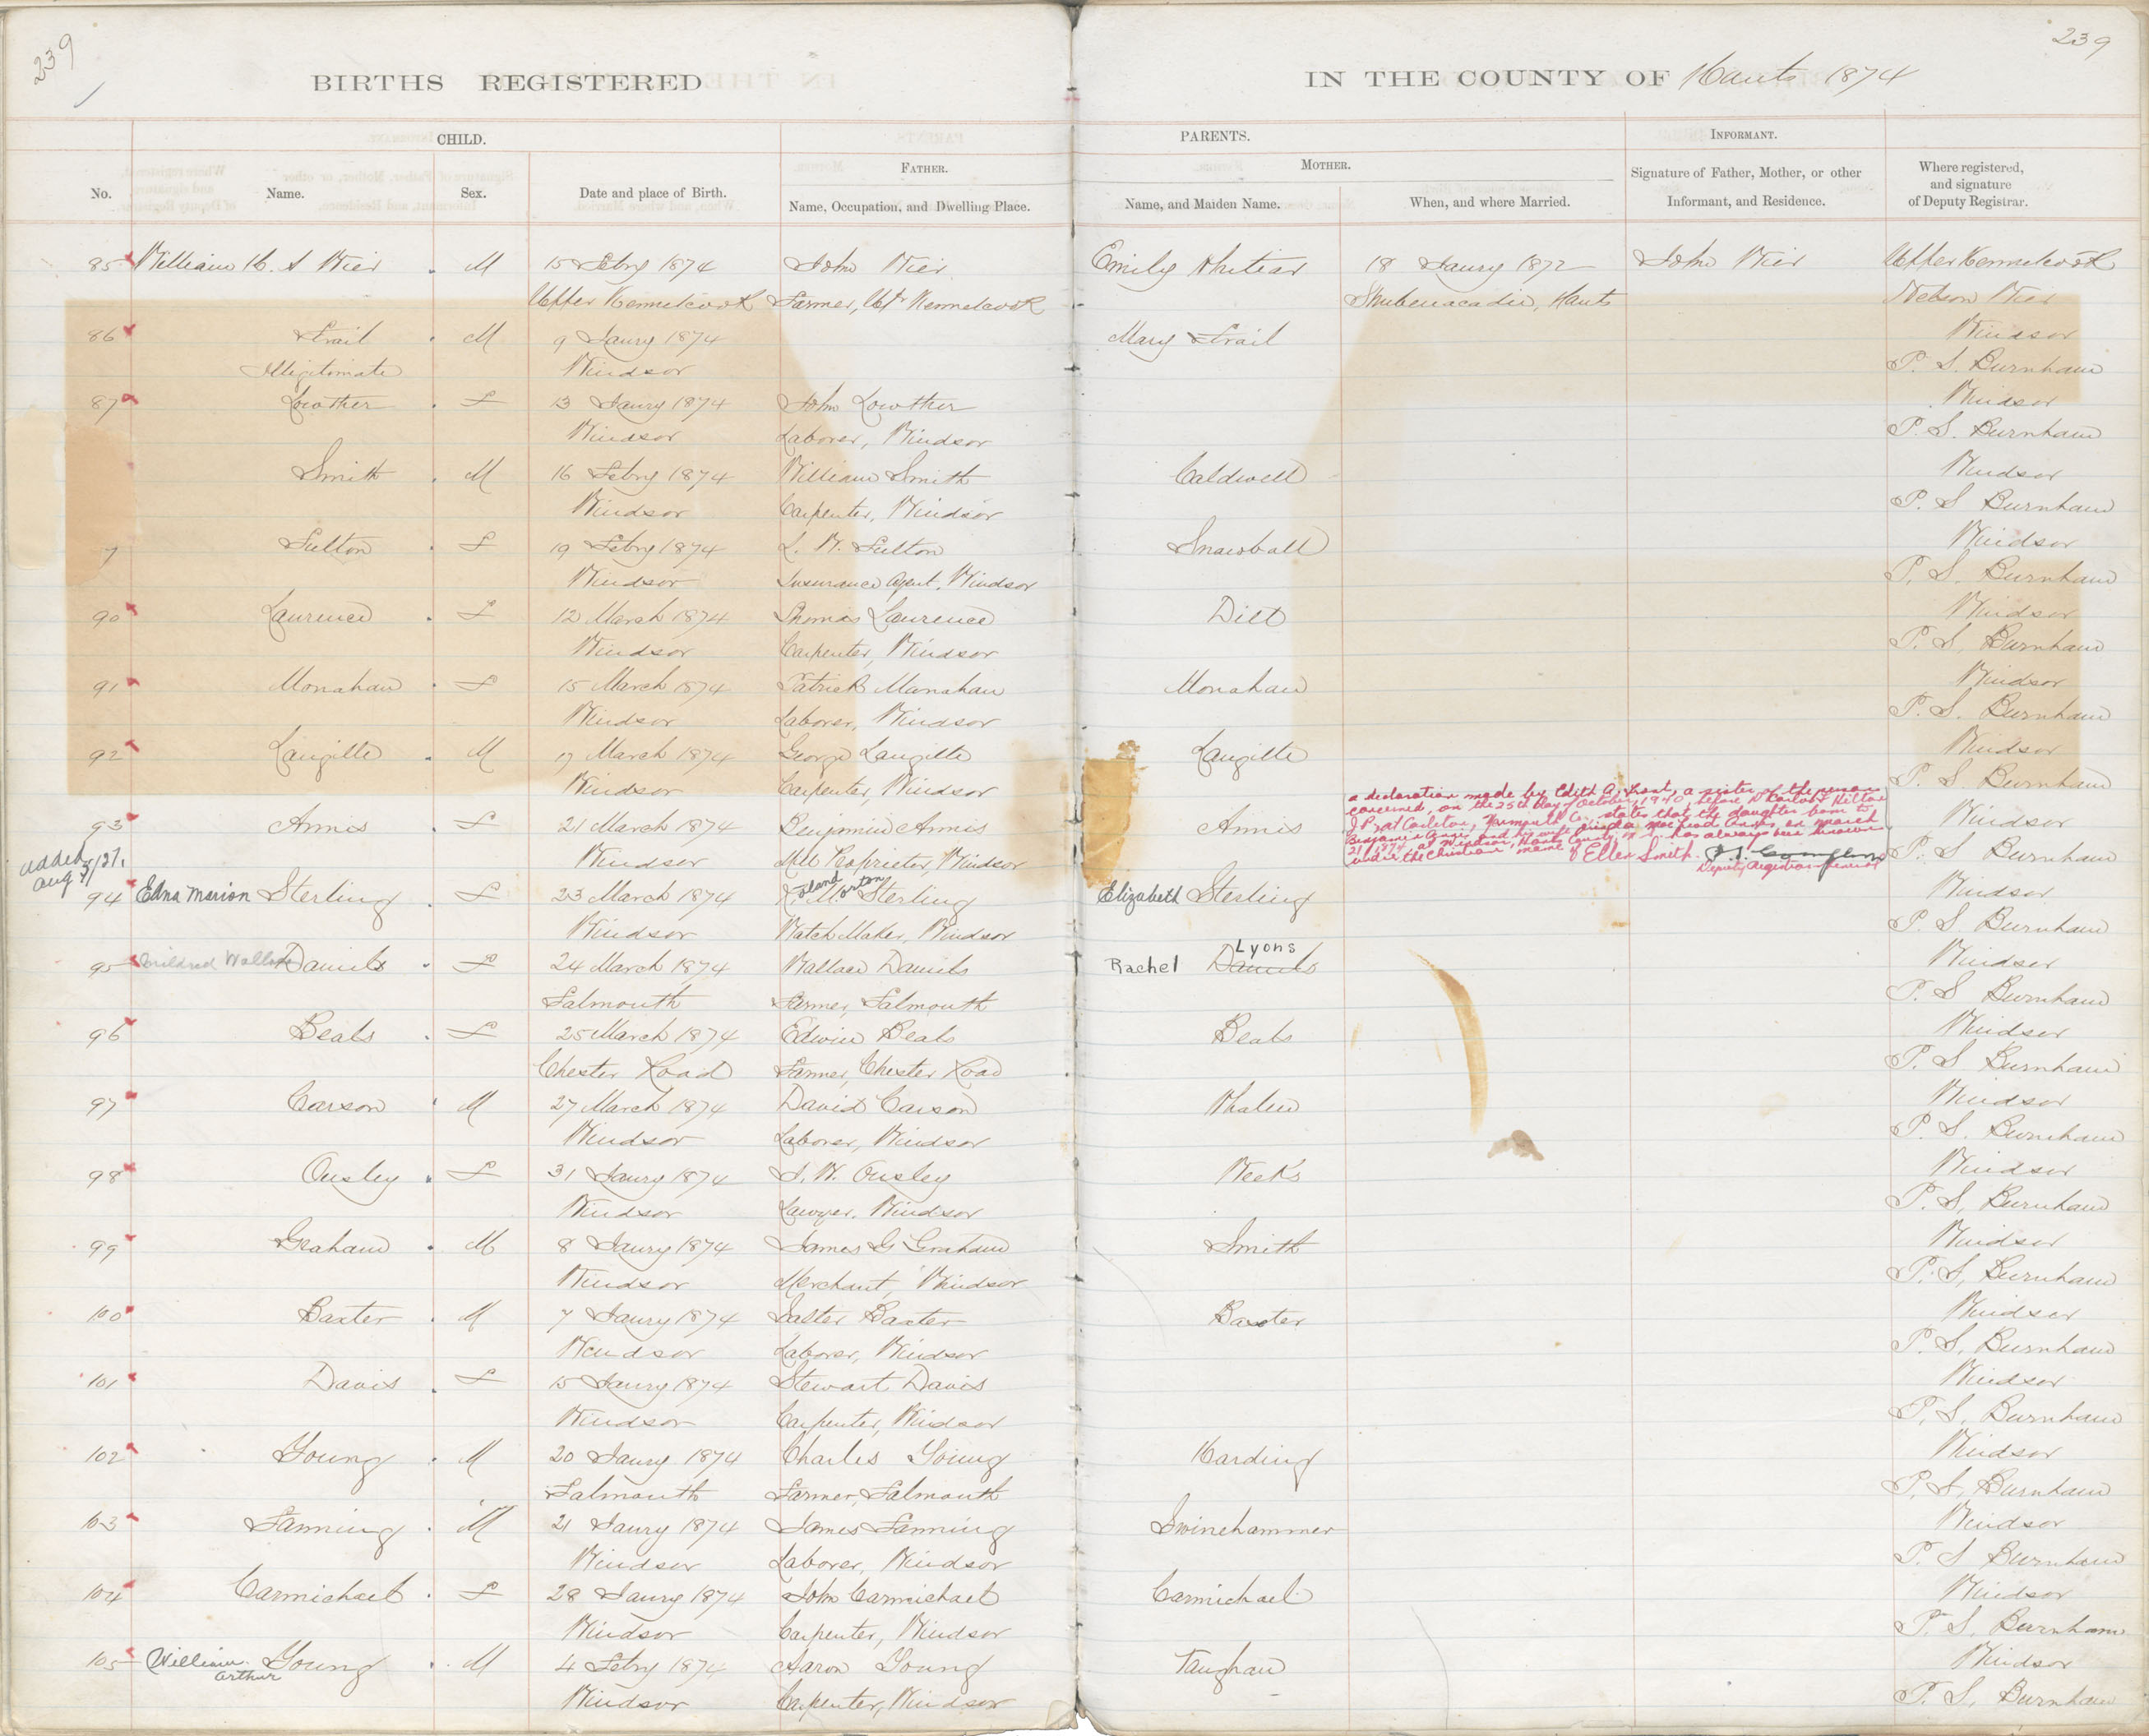 239
239
BIRTHS REGISTERED IN THE COUNTY OF Hants 1874
CHILD. PARENTS. INFORMANT.
FATHER. MOTHER.
No. Name. Sex. Date and place of Birth. Name, Occupation, and Dwelling Place. Name, and Maiden Name. When, and where Married. Signature of Father, Mother, or other Informant, and Residence. Where registered, and signature of Deputy Registrar.
85 William H. S Wier M 15 Febry 1874 John Wier Emily Whitiar 18 Jaury 1872 John Wier Upper Kennetcook
Upper Kennetcook Farmer, Upr Kennetcook Shubenacadie, Hants Nelson Wier
86 Trail M 9 Jaury 1874 Mary Trail Windsor
Illigitimate Windsor P. S. Burnham
87 Lowther F 13 Jaury 1874 John Lowther Windsor
Windsor Laborer, Windsor P. S. Burnham
Smith M 16 Febry 1874 William Smith Caldwell Windsor
Windsor Carpenter, Windsor P. S Burnham
Sutton F 19 Febry 1874 L. W. Sutton Snawball Windsor
Windsor Insurance Agent, Windsor P. S. Burnham
90 Laurence F 12 March 1874 Thomas Laurence Dill Windsor
Windsor Carpenter, Windsor P. S, Burnham
91 Monahan F 15 March 1874 Patrick Manahan Monahan Windsor
Windsor Laborer, Windsor P. S. Burnham
92 Langille M 17 March 1874 George Langille Langille Windsor
Windsor Carpenter, Windsor P. S Burnham
a declaration made by Edith A. a sister of the person
concerned, on the 25th day of October, 1940, before
J P at Carleton, Yarmouth Co., states that the daughter born to
Benjamin Annis and his wife on march
21 1874, at Windsor, Hants County, has always been known
under the Christian name of Ellen Smith.
Deputy Registrar General
93 Annis F 21 March 1874 Benjamin Annis Annis Windsor
Windsor Mill Proprietor, Windsor P. S Burnham
added aug
94 Edna Marion Sterling F 23 March 1874 R.oland M.orton Sterling Elizabeth Sterling Windsor
Windsor Watch Maker, Windsor P. S. Burnham
95 Mildred Wallace Daniels F 24 March 1874 Wallace Daniels Rachel Daniels Lyons Windsor
Falmouth Farmer, Falmouth P. S Burnham
96 Beals F 25 March 1874 Edwin Beals Beals Windsor
Chester Road Farmer, Chester Road P. S Burnham
97 Carson M 27 March 1874 David Carson Whalen Windsor
Windsor Laborer, Windsor P. S. Burnham
98 Ousley F 31 Jaury 1874 J. W. Ousley Weeks Windsor
Windsor Lawyer, Windsor P. S, Burnham
99 Graham M 8 Jaury 1874 James G Graham Smith Windsor
Windsor Merchant, Windsor P. S, Burnham
100 Baxter M 7 Jaury 1874 Baxter Baxter Windsor
Windsor Laborer, Windsor P. S, Burnham
101 Davis F 15 Jaury 1874 Stewart Davis Windsor
Windsor Carpenter, Windsor P. S, Burnham
102 Young M 20 Jaury 1874 Charles Young Harding Windsor
Falmouth Farmer, Falmouth P. S, Burnham
103 Fanning M 21 Jaury 1874 James Fanning Swinehammer Windsor
Windsor Laborer, Windsor P. S Burnham
104 Carmichael F 28 Jaury 1874 John Carmichael Carmichael Windsor
Windsor Carpenter, Windsor P. S. Burnham
105 William Arthur Young M 4 Febry 1874 Aaron Young Vaughan Windsor
Windsor Carpenter, Windsor P. S, Burnham